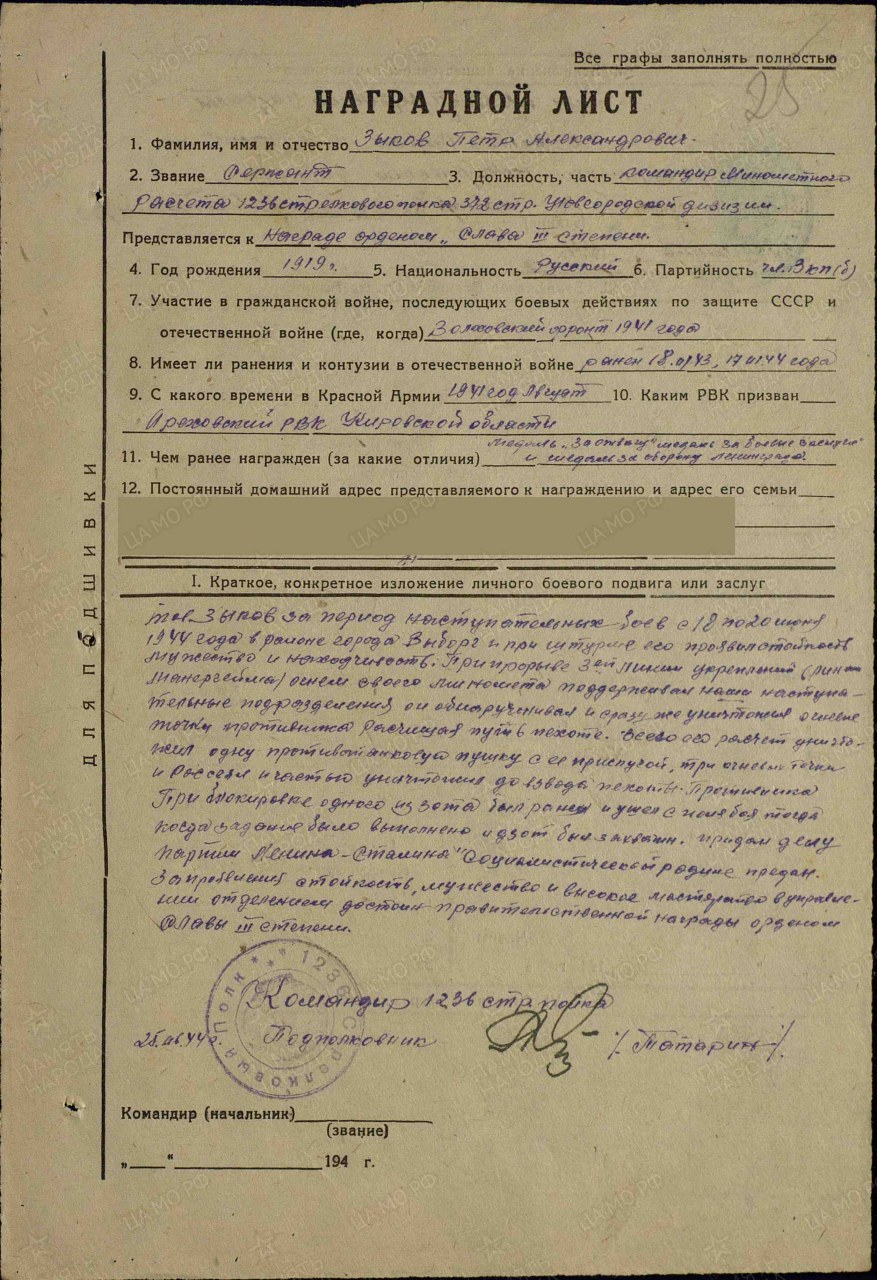 Все графы заполнять полностью
25
НАГРАДНОЙ ЛИСТ
1. Фамилия, имя и отчество Зыков Петр Александрович.
2. Звание Сержант 3. Должность, часть командир минометного
расчета 1236 стрелкового полка 372 стр. Новгородской дивизии.
Представляется к награде орденом „Слава III степени.
4. Год рождения 1919 г. 5. Национальность Русский 6. Партийность чл. ВКП(б)
7. Участие в гражданской войне, последующих боевых действиях по защите СССР и
отечественной войне (где, когда) Волховский фронт 1941 года
8. Имеет ли ранения и контузии в отечественной войне ранен 18. 43, 17 44 года
9. С какого времени в Красной Армии 1941 год Август 10. Каким РВК призван
РВК Кировской области
медаль „За отвагу" медаль за боевые заслуги"
11. Чем ранее награжден (за какие отличия) и медаль за оборону Ленинграда.
12. Постоянный домашний адрес представляемого к награждению и адрес его семьи
I. Краткое, конкретное изложение личного боевого подвига или заслуг
тов. Зыков за период наступательных боев с 18 по 20 июня
1944 года в районе города Выборг и при штурме его проявил стойкость
мужество и находчивость. При прорыве 3ей линии укреплений (линия
Маннергейма) огнем своего миномета поддерживал наши наступа-
тельные подразделения он обнаруживал и сразу же уничтожал огневые
точки противника расчищая путь пехоте. Всего его расчет уничто-
жил одну противотанковую пушку с ее прислугой, три огневых точки
и рассеял и частью уничтожил до взвода пехоты. Противника
При блокировке одного из зота был ранен и ушел с поля боя тогда
когда задание было выполнено и дзот был захвачен. Предан делу
партии Ленина-Сталина "Социалистической родине предан.
За проявленный стойкость, мужество и высокое мастерство в управле-
нии отделением достоин правительственной награды орденом
Славы III степени.
1236 Стрелковый Полк
Командир 1236 стр полка
25.06.44 г. Подполковник /Татарин/.
Командир (начальник)
(звание)
„ " 194 г.
ДЛЯ ПОДШИВКИ
ЦАМО РФ